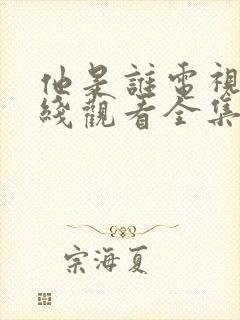 他是誰電視
綫觀看全集
宗海夏